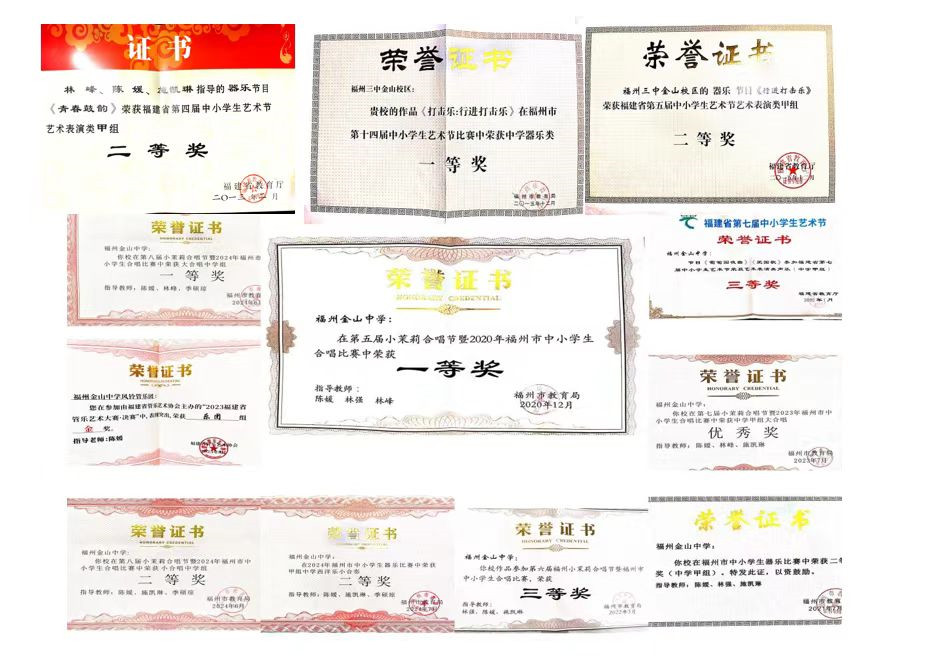 证书
林峰、陈媛、施凯琳指导的器乐节目
《青春鼓韵》荣获福建省第四届中小学生艺术节
艺术表演类甲组
二等奖
福建省教育厅
荣誉证书
福州三中金山校区:
贵校的作品《打击乐:行进打击乐》在福州市
第十四届中小学生艺术节比赛中荣获中学器乐类
一等奖
福州市教育局
二〇一五年十二月
荣誉证书
福州三中金山校区的 器乐 节目《行进打击乐》
荣获福建省第五届中小学生艺术节艺术表演类甲组
二等奖
福建省教育厅
荣誉证书
HONORARY CREDENTIAL
福州金山中学:
你校在第八届小茉莉合唱节暨2024年福州市
小学生合唱比赛中荣获大合唱中学组
一等奖
指导教师:陈媛、林峰、季硕琼
福州市教育
2024年6月
荣誉证书
HONORARY CREDENTIAL
福州金山中学:
在第五届小茉莉合唱节暨2020年福州市中小学生
合唱比赛中荣获
一等奖
指导教师:
陈媛 林强 林峰
福州市教育局
2020年12月
福建省第七届中小学生艺术节
荣誉证书
福州金山中学:
中小学生艺术节荣获艺术表演类声乐(中学甲组)
三等奖
福建省教育厅
荣誉证书
福州金山中学风铃管乐团:
您在参加由福建省管乐艺术协会主办的“2023福建省
管乐艺术大赛·决赛”中,表现突出,荣获 乐团 组
金 奖。
指导老师:陈媛
荣誉证书
HONORARY CREDENTIAL
福州金山中学:
你校在第七届小茉莉合唱节暨2023年福州市中
小学生合唱比赛中荣获中学甲组大合唱
优秀奖
指导教师:陈媛、林峰、施凯琳
福州市教育局
2023年7月
荣誉证书
HONORARY CREDENTIAL
福州金山中学:
你校在第八届小茉莉合唱节暨2024年福州市中
小学生合唱比赛中荣获小合唱中学组
二等奖
指导教师:陈媛、施凯琳、季硕琼
福州市教育局
2024年6月
荣誉证书
福州金山中学:
在2024年福州市中小学生器乐比赛中荣获
甲组中学西洋乐小合奏
二等奖
指导教师:陈媛、施凯琳、季硕琼
福州市教育局
荣誉证书
HONORARY CREDENTIAL
福州金山中学:
你校作品参加第六届福州小茉莉合唱节暨福州市
中小学生合唱比赛，荣获
三等奖
指导教师:
林强、陈媛、施凯琳
福州市教育局
2022年7月
荣誉证书
福州金山中学:
你校在福州市中小学生器乐比赛中荣获二等
奖(中学甲组)。特发此证，以资鼓励。
指导教师:陈媛、林强、施凯琳
福州市教育